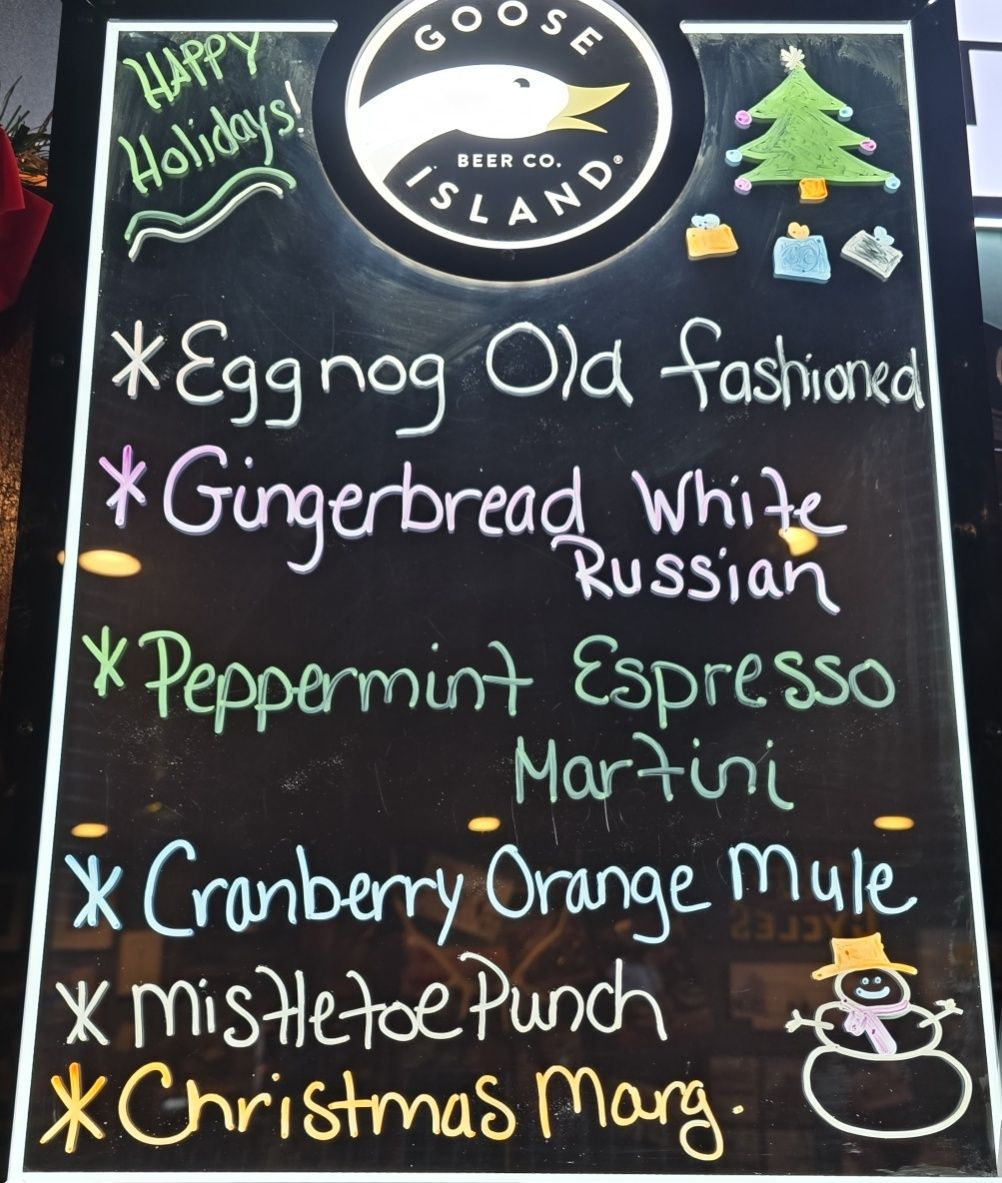 HAPPY
Holidays!
GOOSE
BEER CO.
ISLAND®
* Eggnog Old fashioned
* Gingerbread White
Russian
* Peppermint Espresso
Martini
* Cranberry Orange Mule
* Mistletoe Punch
* Christmas Marg.